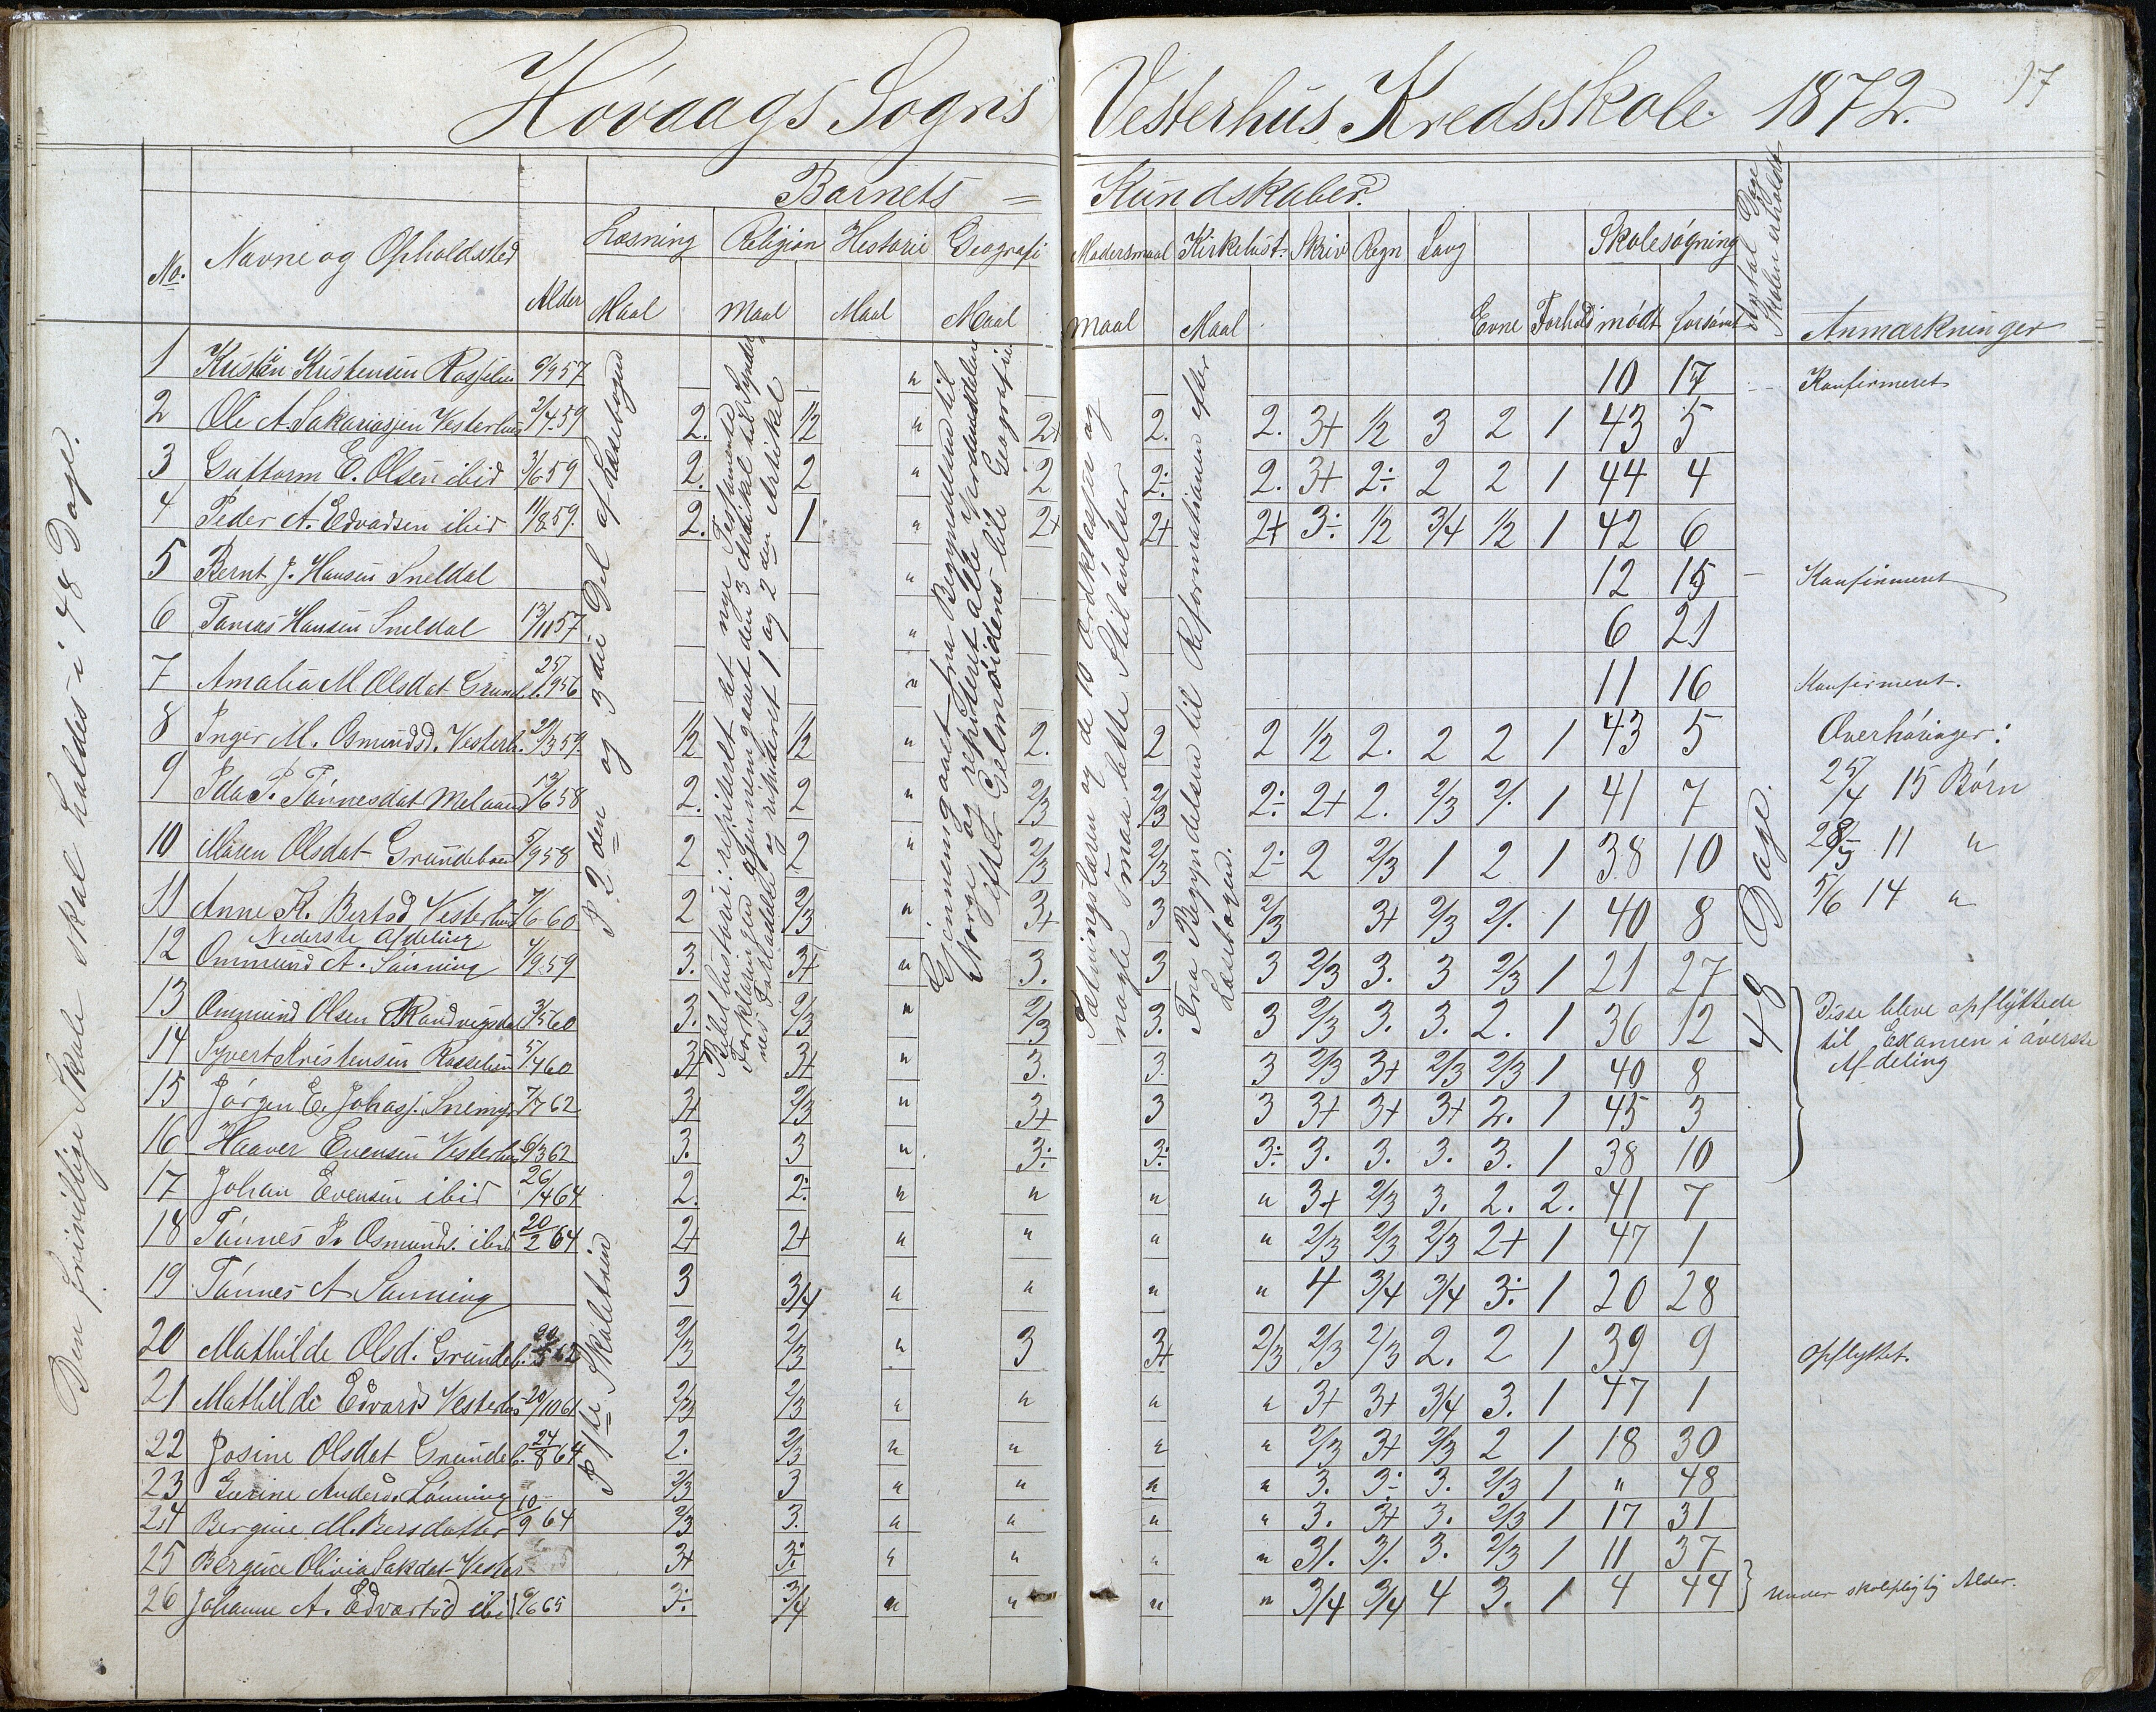 Høvaags Sogns Vesterhus Kredsskole. 1872.
Barnets = Kundskaber.
No. Navne og Opholdssted Alder Læsning Religion Historie Geografi Modersmaal Kirkehist: Skriv Regn Sang Evne Forhold Skolesøgning Antal Dage Skolen erholdt Anmærkninger
Maal Maal Maal Maal Maal Maal mødt forsømt
1 Kristen Kristensen 6/9 57 " 10 17 Konfirmeret
2 Ole A. Sakariasen Vesterhus 2/4 59 2. 1/2 " 2+ 2. 2. 3+ 1/2 3 2 1 43 5
3 Guttorm E. Olsen ibid 3/6 59 2. 2 " 2 2÷ 2. 3+ 2÷ 2 2 1 44 4
4 Peder A. Edvardsen ibid 11/8 59. 2. 1 " 2+ 2+ 2+ 3÷ 1/2 3/4 1/2 1 42 6
5 Bernt J. Hansen Sneldal " 12 15 Konfirmeret
6 Tomas Hansen Sneldal 13/11 57 " 6 21
7 Amalia M Olsdat Grundeb. 25/9 56 " 11 16 Konfirmeret.
8 Inger M. Osmundsd. Vesterh. 29/3 59 1/2 1/2 " 2. 2 2 1/2 2. 2 2 1 43 5 Overhøringer:
9 Ida P. Tønnesdat 13/6 58 2. 2 " 2/3 2/3 2÷ 2+ 2. 2/3 2/. 1 41 7 25/4 15 Børn
10 Maren Olsdat Grundeboen 5/9 58 2 2 " 2/3 2/3 2÷ 2 2/3 1 2 1 38 10 28/5 11 "
11 Anne K. Bertsd Vesterhus 7/6 60 2 2/3 " 3+ 3 2/3 3+ 2/3 2/. 1 40 8 5/6 14 "
Nederste Afdeling
12 Ommund A. Sånning 4/9 59 3. 3+ " 3. 3 3 2/3 3. 3 2/3 1 21 27
13 Ommund Olsen Randvigsdal 3/5 60 3. 2/3 " 2/3 3. 3 2/3 3. 3. 2. 1 36 12 Disse bleve opflyttede
14 Syvert Kristensen 5/4 60 3+ 3+ " 3. 3. 3 2/3 3+ 2/3 2/3 1 40 8 til Examen i øverste
15 Jørgen E. Johasj. Snemyr 7/7 62 3+ 2/3 " 3+ 3 3 3+ 3+ 3+ 2. 1 45 3 Afdeling
16 Haaver Evensen Vesterhus 6/3 62 3. 3 " 3÷ 3÷ 3÷ 3. 3. 3. 3. 1 38 10
17 Johan Evensen ibid 26/4 64 2. 2÷ " " " " 3+ 2/3 3. 2. 2. 41 7
18 Tønnes P. Osmunds. ibid 20/2 64 2+ 2+ " " " " 2/3 2/3 2/3 2+ 1 47 1
19 Tønnes A Sanning 3 3/4 " " " " 4 3/4 3/4 3÷ 1 20 28
20 Mathilde Olsd. Grundeb. 62 2/3 2/3 " 3 3+ 2/3 2/3 2/3 2. 2 1 39 9 Opflyttet.
21 Mathilde Edvards Vesterhus 20/10 61 2/3 2/3 " " " " 3+ 3+ 3/4 3. 1 47 1
22 Josine Olsdat Grundeb. 24/8 64 2. 2/3 " " " " 2/3 3+ 2/3 2 1 18 30
23 Gurine Anders. Lønning 2/3 3 " " " " 3. 3÷ 3. 2/3 1 " 48
24 Bergine M. Bersdatter 10/9 64 2/3 3. " " " " 3. 3+ 3. 2/3 1 17 31
25 Bergine Olivia Sakdat Vester 3+ 3÷ " " " " 3/. 3/. 3. 2/3 1 11 37
26 Johanne A. Edvartsd ibid 6/6 65 3÷ 3/4 " " " " 3/4 3/4 4 3. 1 4 44 Under skolepligtig Alder.
Den frivillige Skole skal holdes i 48 Dage.
P. 2den og 3die Del af Læsebogen
P. 1ste Skoletrin
Bibelhistorie: repitert det nye Testamente
Forklaringen gjennemgaaet den 3 Artikel til Synder
nes Forladelse og repitiret 1 og 2den Artikel
Gjennemgaaet fra Begyndelsen til
Norge og repiteret alle Verdensdelene
efter Geelmuidens lille Geografi.
Sætningslæren og de 10 Ordklasser og
nogle smaa lette Stiløvelser
Fra Begyndelsen til Reformationen efter
Læsebogen.
48 Dage.